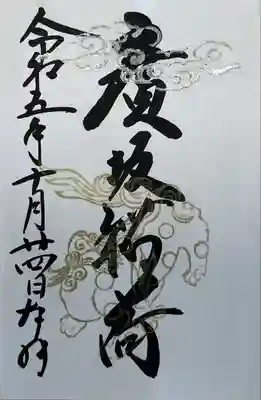 廣坂稲荷
令和五年十月廿四日在拝